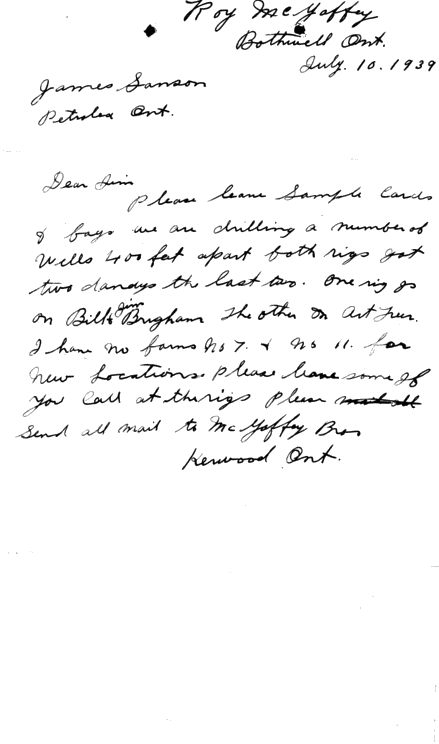 Roy McGaffey
Bothwell Ont.
July. 10. 1939
James Sanson
Petrolea Ont.
Dear Jim
Please leave Sample Cards
& bags we are drilling a number of
Wells 400 feet apart both rigs got
two dandys the last two. One rig is
on Bill & Jim Brigham The other on Art
I have no forms No 7. & No 11. for
New Locations Please leave some If
You Call at the rigs Please
Send all mail to McGaffey Bros
Kerwood Ont.